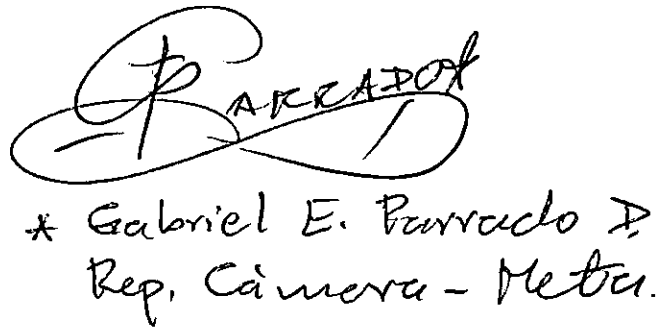 PARRADO
* Gabriel E. Parrado D.
Rep. Cámara - Meta.